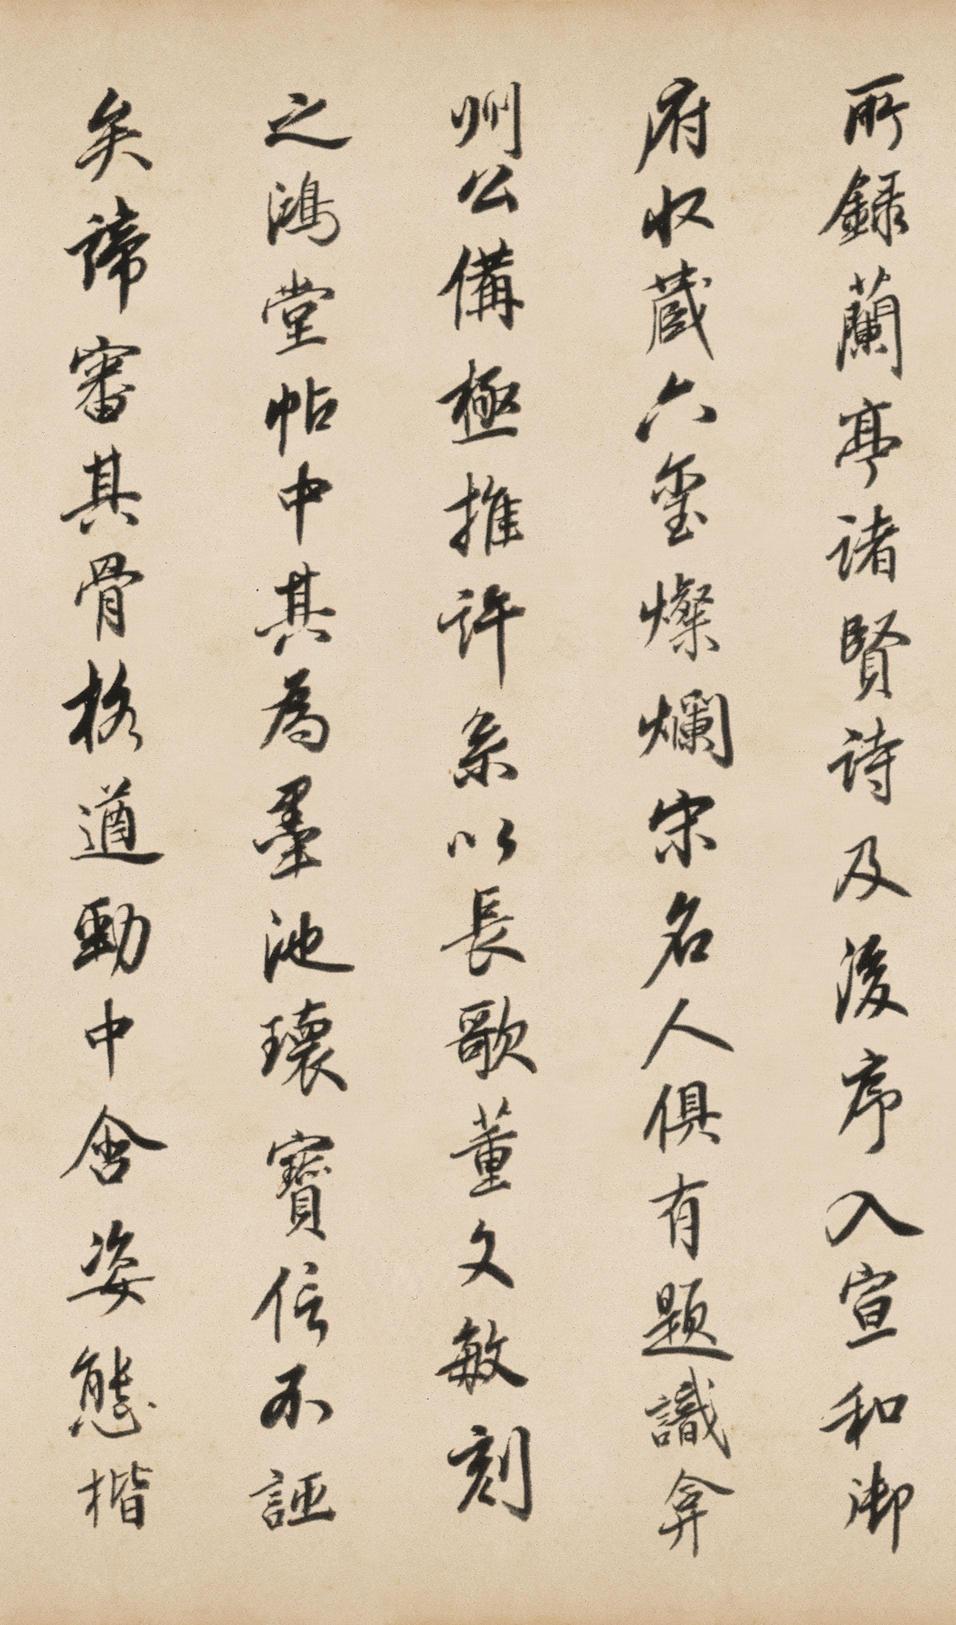 所録蘭亭諸賢詩及後序入宣和御
府収蔵六璽燦爛宋名人俱有題識弇
州公備極推許系以長歌董文敏刻
之鴻堂帖中其為墨池瓌寶信不誣
矣諦審其骨格遒勁中含姿態楷